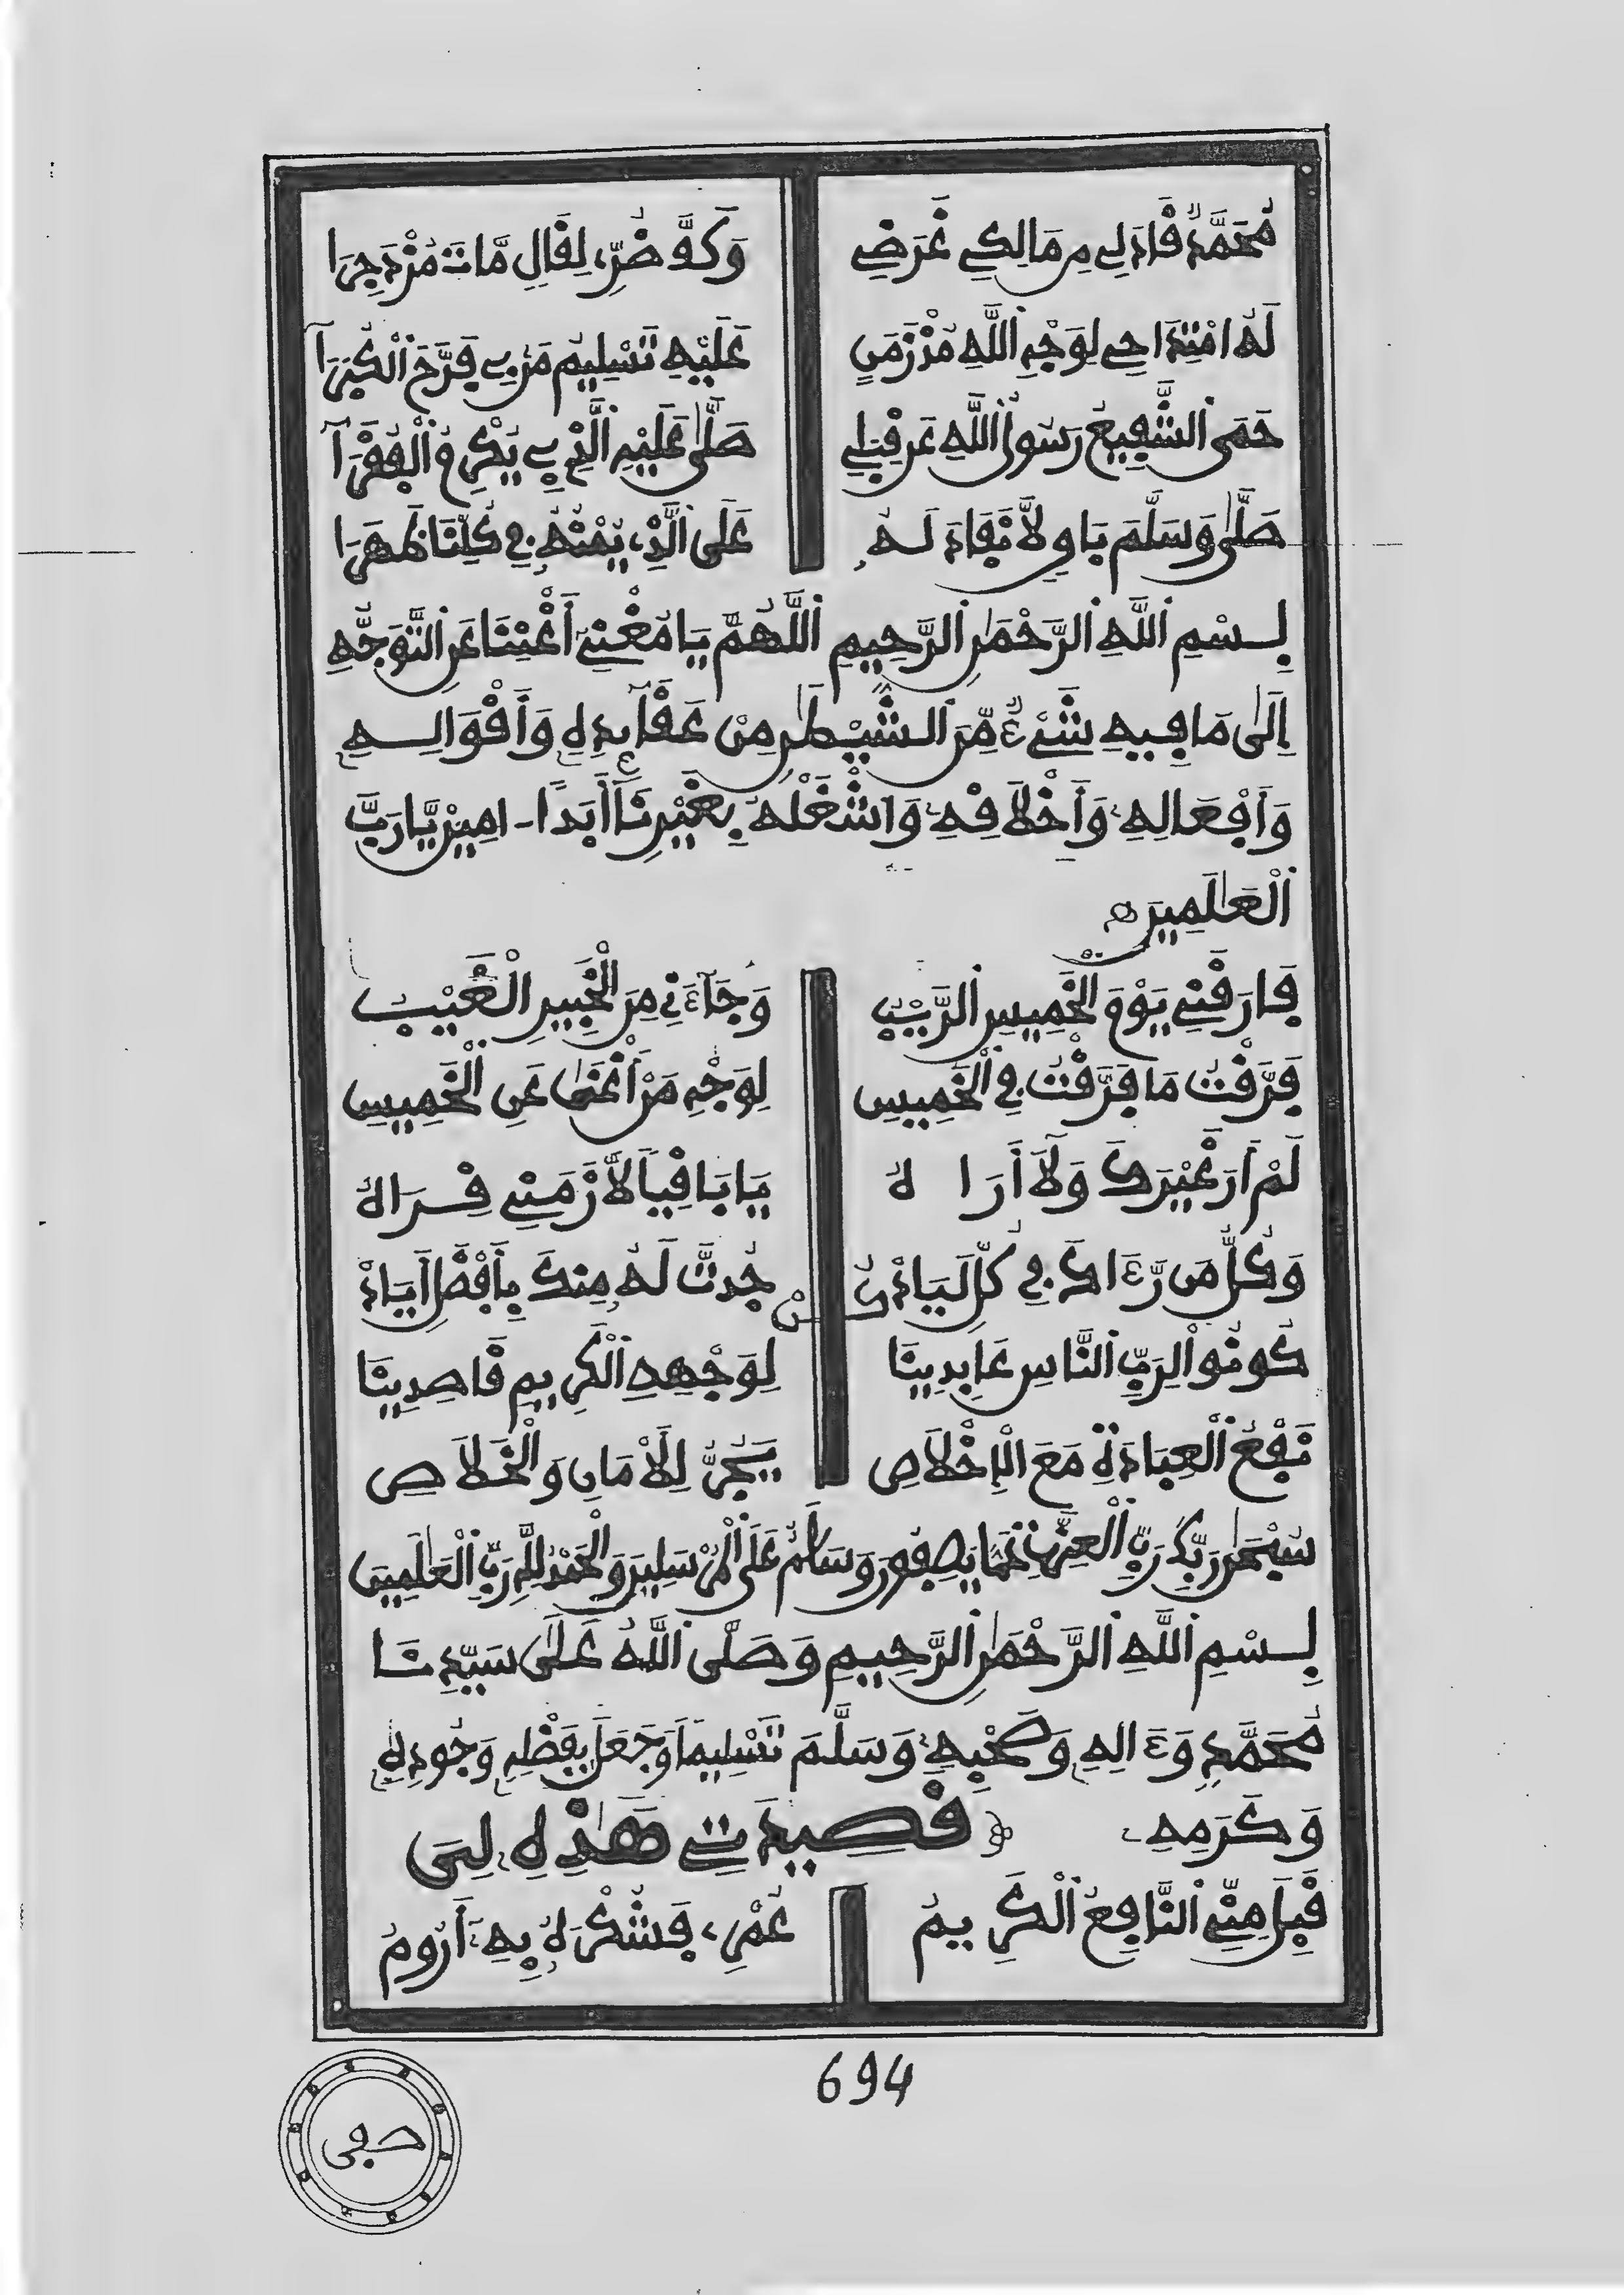 مُحَمَّدٌ قَادَ لِي مِن مَالِكِي غَرَضِي وَكَفَّ ضُرِّي لِقَالِ مَّاتَ مُزْدَجِرَا
لَهُ امْتِدَاحِي لِوَجْهِ اللَّهِ مُذْ زَمَنٍ عَلَيْهِ تَسْلِيمُ مَن بِي فَرَّحَ الْكُبَرَآ
حَمَى الشَّفِيعُ رَسُولُ اللَّهِ عَن قِبَلِي صَلَّى عَلَيْهِ الَّذِي بِي يُكْرِمُ الْفُقَرَآ
صَلَّى وَسَلَّمَ بَاقٍ لَا نَفَادَ لَهُ عَلَى الَّذِي يُمْنُهُ فِي كُلِّنَا ظَهَرَا
بِسْمِ اللَّهِ الرَّحْمَٰنِ الرَّحِيمِ اللَّهُمَّ يَا مُغْنِي أَغْنِنَا عَنِ التَّوَجُّهِ
إِلَى مَا فِيهِ شَيْءٌ مِّنَ الشَّيْطَٰنِ مِنْ عَقَآئِدِهِ وَأَقْوَالِهِ
وَأَفْعَالِهِ وَأَخْلَاقِهِ وَاشْغَلْهُ بِغَيْرِنَا أَبَدًا - امِينْ يَا رَبَّ
الْعَٰلَمِينَ
فَارَقَنِي يَوْمَ الْخَمِيسِ الرَّيْبُ وَجَآءَنِي مِنَ الْخَبِيرِ الْغَيْبُ
فَرَّقْتُ مَا فَرَّقْتُ فِي الْخَمِيسِ لِوَجْهِ مَنْ أَغْنَى عَنِ الْخَمِيسِ
لَمْ أَرَ غَيْرَكَ وَلَآ أَرَاهُ يَا بَاقِيًا لَا زَمَنِي قِرَاهُ
وَكُلُّ مَن رَّءَاكَ فِي كُلِّ لَيَادْ جُدتَّ لَهُ مِنكَ بِأَفْضَلِ أَيَادْ
كُونُوا لِرَبِّ النَّاسِ عَابِدِينَا لِوَجْهِهِ الْكَرِيمِ قَاصِدِينَا
نَفْعُ الْعِبَادَةِ مَعَ الْإِخْلَاصِ يَجُرُّ لِلْأَمَانِ وَالْخَلَاصِ
سُبْحَٰنَ رَبِّكَ رَبِّ الْعِزَّةِ عَمَّا يَصِفُونَ وَسَلَٰمٌ عَلَى الْمُرْسَلِينَ وَالْحَمْدُ لِلَّهِ رَبِّ الْعَٰلَمِينَ
بِسْمِ اللَّهِ الرَّحْمَٰنِ الرَّحِيمِ وَصَلَّى اللَّهُ عَلَى سَيِّدِنَا
مُحَمَّدٍ وَءَالِهِ وَصَحْبِهِ وَسَلَّمَ تَسْلِيمًا وَجَعَلَ بِفَضْلِهِ وَجُودِهِ
وَكَرَمِهِ قَصِيدَتِي هَٰذِهِ لِتَى
قَبِلَ مِنِّي النَّافِعُ الْكَرِيمُ عُمْرِي فَشُكْرَهُ بِهِ أَرُومُ
694
حـفى